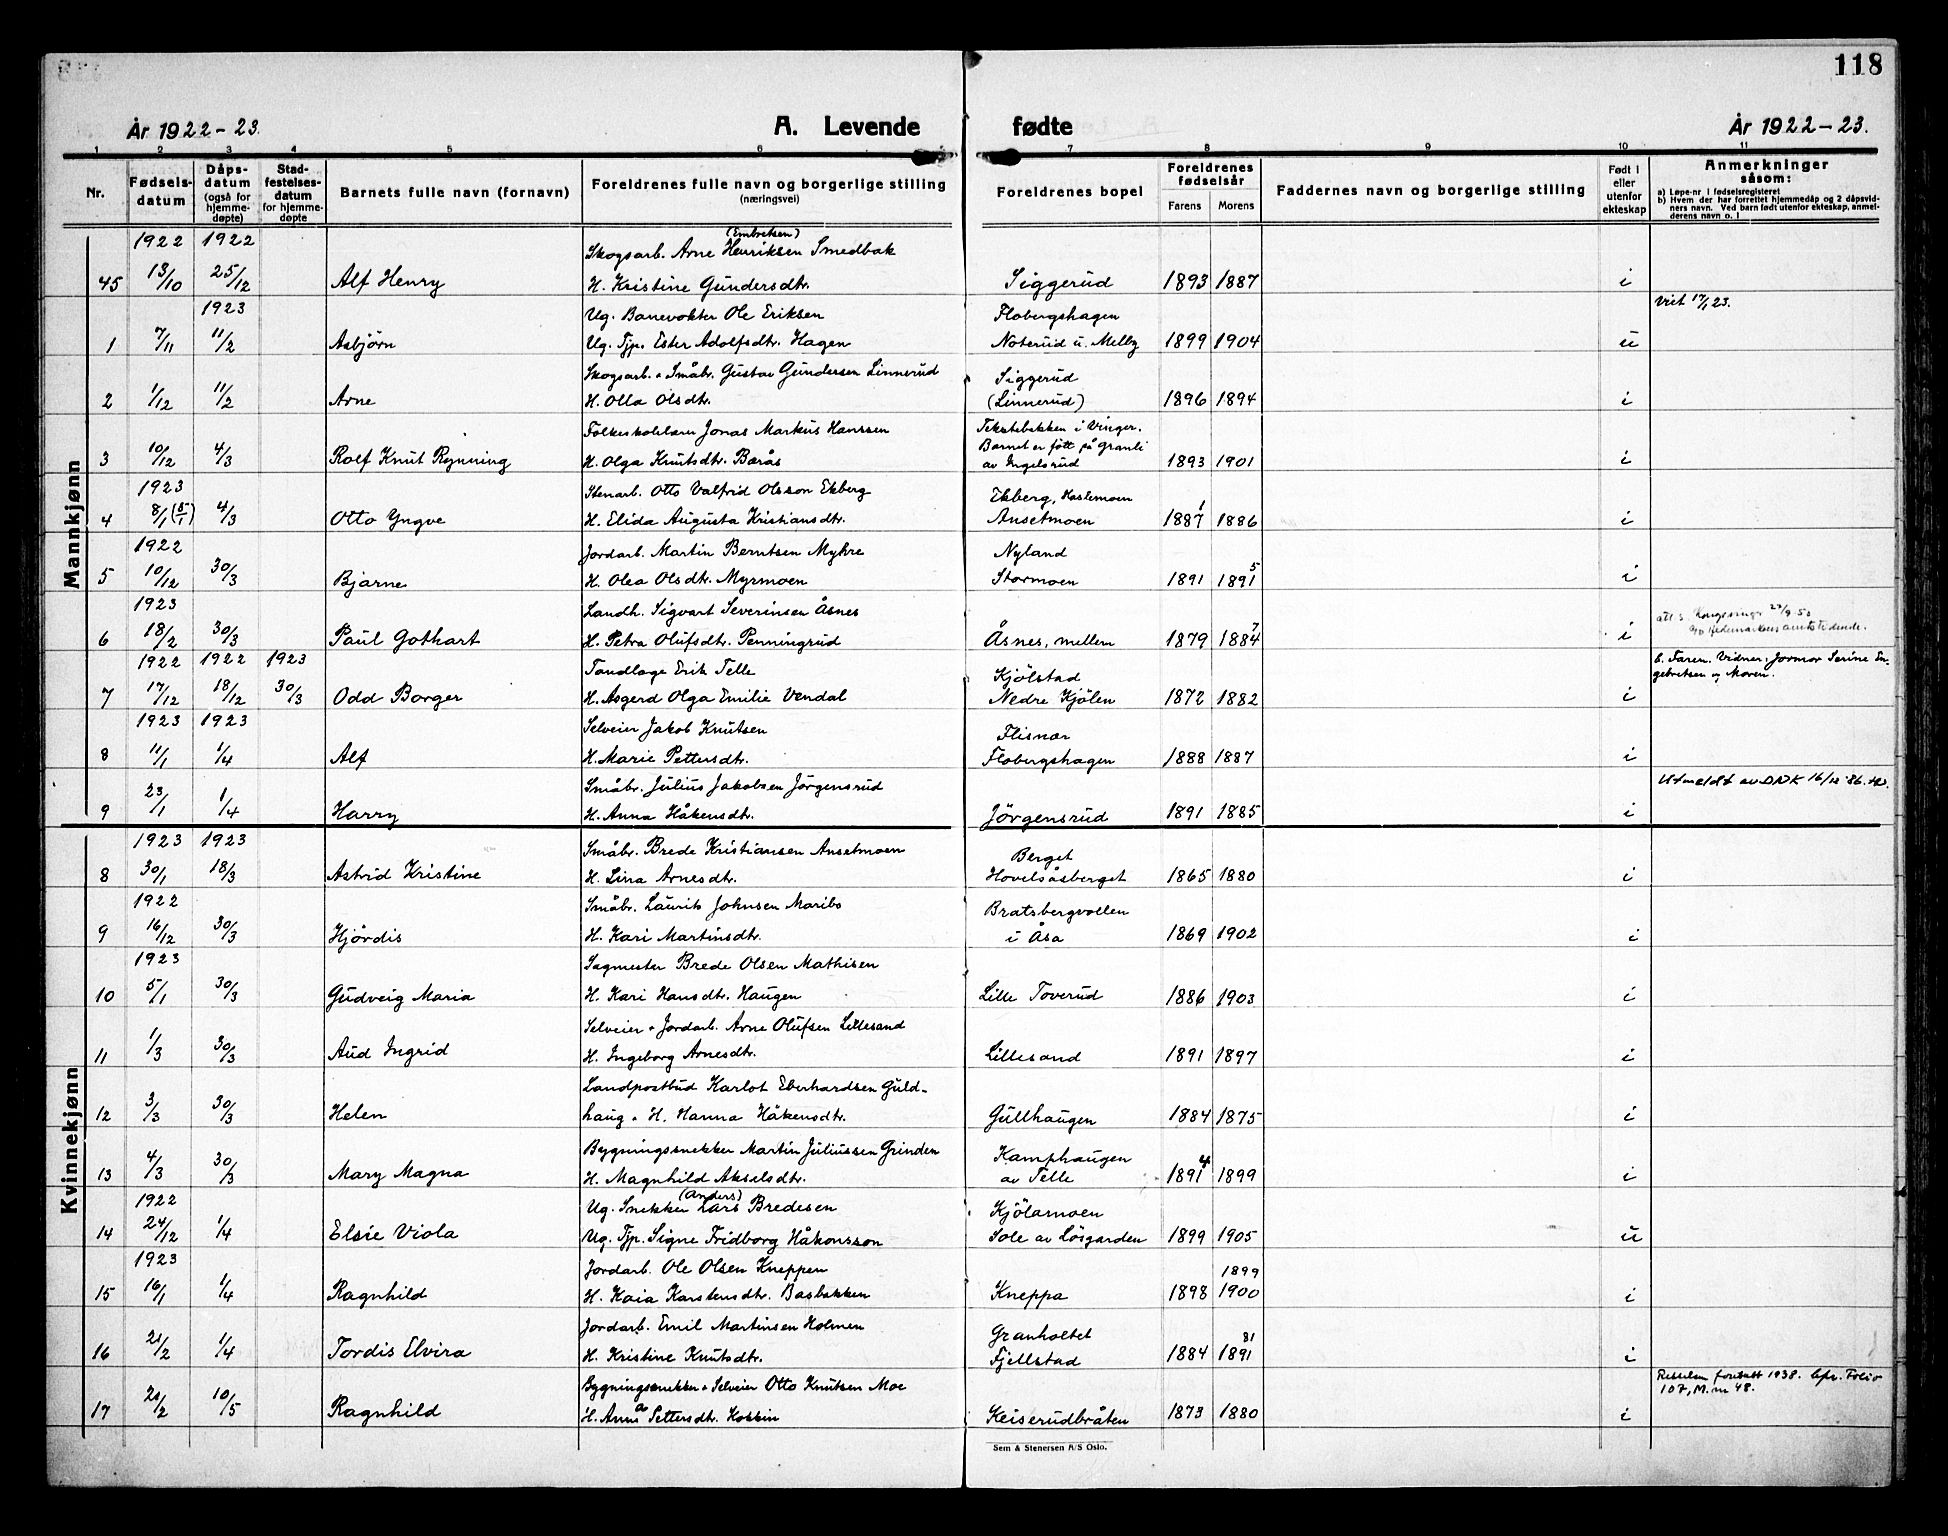 118
År 1922-23.
A. Levende fødte
År 1922-23.
1 2 3 4 5 6 7 8 9 10 11
Nr.
Fødsels-
datum
Dåps-
datum
(også for
hjemme-
døpte)
Stad-
festelses-
datum
for hjemme-
døpte
Barnets fulle navn (fornavn)
Foreldrenes fulle navn og borgerlige stilling
(næringsvei)
Foreldrenes bopel
Foreldrenes
fødselsår
Farens Morens
Faddernes navn og borgerlige stilling
Født i
eller
utenfor
ekteskap
Anmerkninger
såsom:
a) Løpe-nr i fødselsregisteret
b) Hvem der har forrettet hjemmedåp og 2 dåpsvid-
ners navn. Ved barn født utenfor ekteskap, anmel-
derens navn o. l
Mannkjønn
1922 1922 (Embretsen)
Skogsarb. Arne Henriksen Smedbak
45 13/10 25/12 Alf Henry H. Kristine Gundersdtr. Siggerud 1893 1887 i
1923 Ug. Banevokter Ole Eriksen Flobergshagen 17/1 23.
1 7/11 11/2 Asbjørn Ug. Tjp. Ester Adolfsdtr. Hagen Noterud u. Melby 1899 1904 u
Skogsarb. + Småbr. Gustav Gundersen Linnerud Siggerud
2 1/12 11/2 Arne H. Olla Olsdtr. (Linnerud) 1896 1894 i
Folkeskolelærer Jonas Markus Hanssen i Vinger.
Barnet er født på Granli
3 10/12 4/3 Rolf Knut Rynning H. Olga Knutsdtr. Barås av Ingelsrud 1893 1901 i
1923 Stenarb. Otto Valfrid Olsson Ekberg Ekberg, Kaslemoen 1
4 8/1 (5/1) 4/3 Otto Yngve H. Elida Augusta Kristiansdtr. Ansetmoen 1887 1886 i
1922 Jordarb. Martin Berntsen Myhre Nyland 5
5 10/12 30/3 Bjarne H. Olea Olsdtr. Myrmoen Stormoen 1891 1891 i
1923 Landh. Sigvart Severinsen Åsnes 7
6 18/2 30/3 Paul Gothart H. Petra Olufsdtr. Penningrud Åsnes, mellem 1879 1884 i
1922 1922 1923 Tandlæge Erik Telle Kjölstad b. Faren. Vidner: Jormor Serine En-
gebretsen og Moren.
7 17/12 18/12 30/3 Odd Borger H. Asgerd Olga Emilie Vendal Nedre Kjölen 1872 1882 i
1923 1923 Selveier Jakob Knutsen Flisnær
8 11/1 1/4 Alf H. Marie Pettersdtr. Flobergshagen 1888 1887 i
Småbr. Julius Jakobsen Jörgensrud Utmeldt av DNK 16/12 '86.
9 23/1 1/4 Harry H. Anna Håkensdtr. Jörgensrud 1891 1885 i
Kvinnekjønn
1923 1923 Småbr. Brede Kristiansen Ansetmoen Berget
8 30/1 18/3 Astrid Kristine H. Lina Arnesdtr. Hovelsåsberget 1865 1880 i
1922 Småbr. Laurits Johnsen Maribo Bratsbergvollen
9 16/12 30/3 Hjördis H. Kari Martinsdtr. i Åsa 1869 1902 i
1923 Sagmester Brede Olsen Mathisen
10 5/1 30/3 Gudveig Maria H. Kari Hansdtr. Haugen Lille Toverud 1886 1903 i
Selveier + Jordarb. Arne Olufsen Lillesand
11 1/3 30/3 Aud Ingrid H. Ingeborg Arnesdtr. Lillesand 1891 1897 i
Landpostbud Karlot Eberhardsen Guld-
12 3/3 30/3 Helen haug + H. Hanna Håkensdtr. Gullhaugen 1884 1875 i
Bygningssnekker Martin Juliussen Grinden Kamphaugen 4
13 4/3 30/3 Mary Magna H. Magnhild Akselsdtr. av Telle 1891 1899 i
1922 (Anders)
Ug. Snekker Lars Bredesen Kjölarmoen
14 24/12 1/4 Elsie Viola Ug. Tjp. Signe Fridborg Håkonsson Sole av Lösgarden 1899 1905 u
1923 Jordarb. Ole Olsen Kneppen 1899
15 16/1 1/4 Ragnhild H. Kaia Karstensdtr. Basbakken Kneppa 1898 1900 i
Jordarb. Emil Martinsen Holmen Granholtet 81
16 21/2 1/4 Tordis Elvira H. Kristine Knutsdtr. Fjellstad 1884 1891 i
Bygningssnekker + Selveier Otto Knutsen Moe 1938. Cfr. Folio
107, M. nr 48.
17 21/2 10/5 Ragnhild H. Anna Pettersdtr. Kokkin Keiserudbråten 1873 1880 i
Sem & Stenersen A/S Oslo.